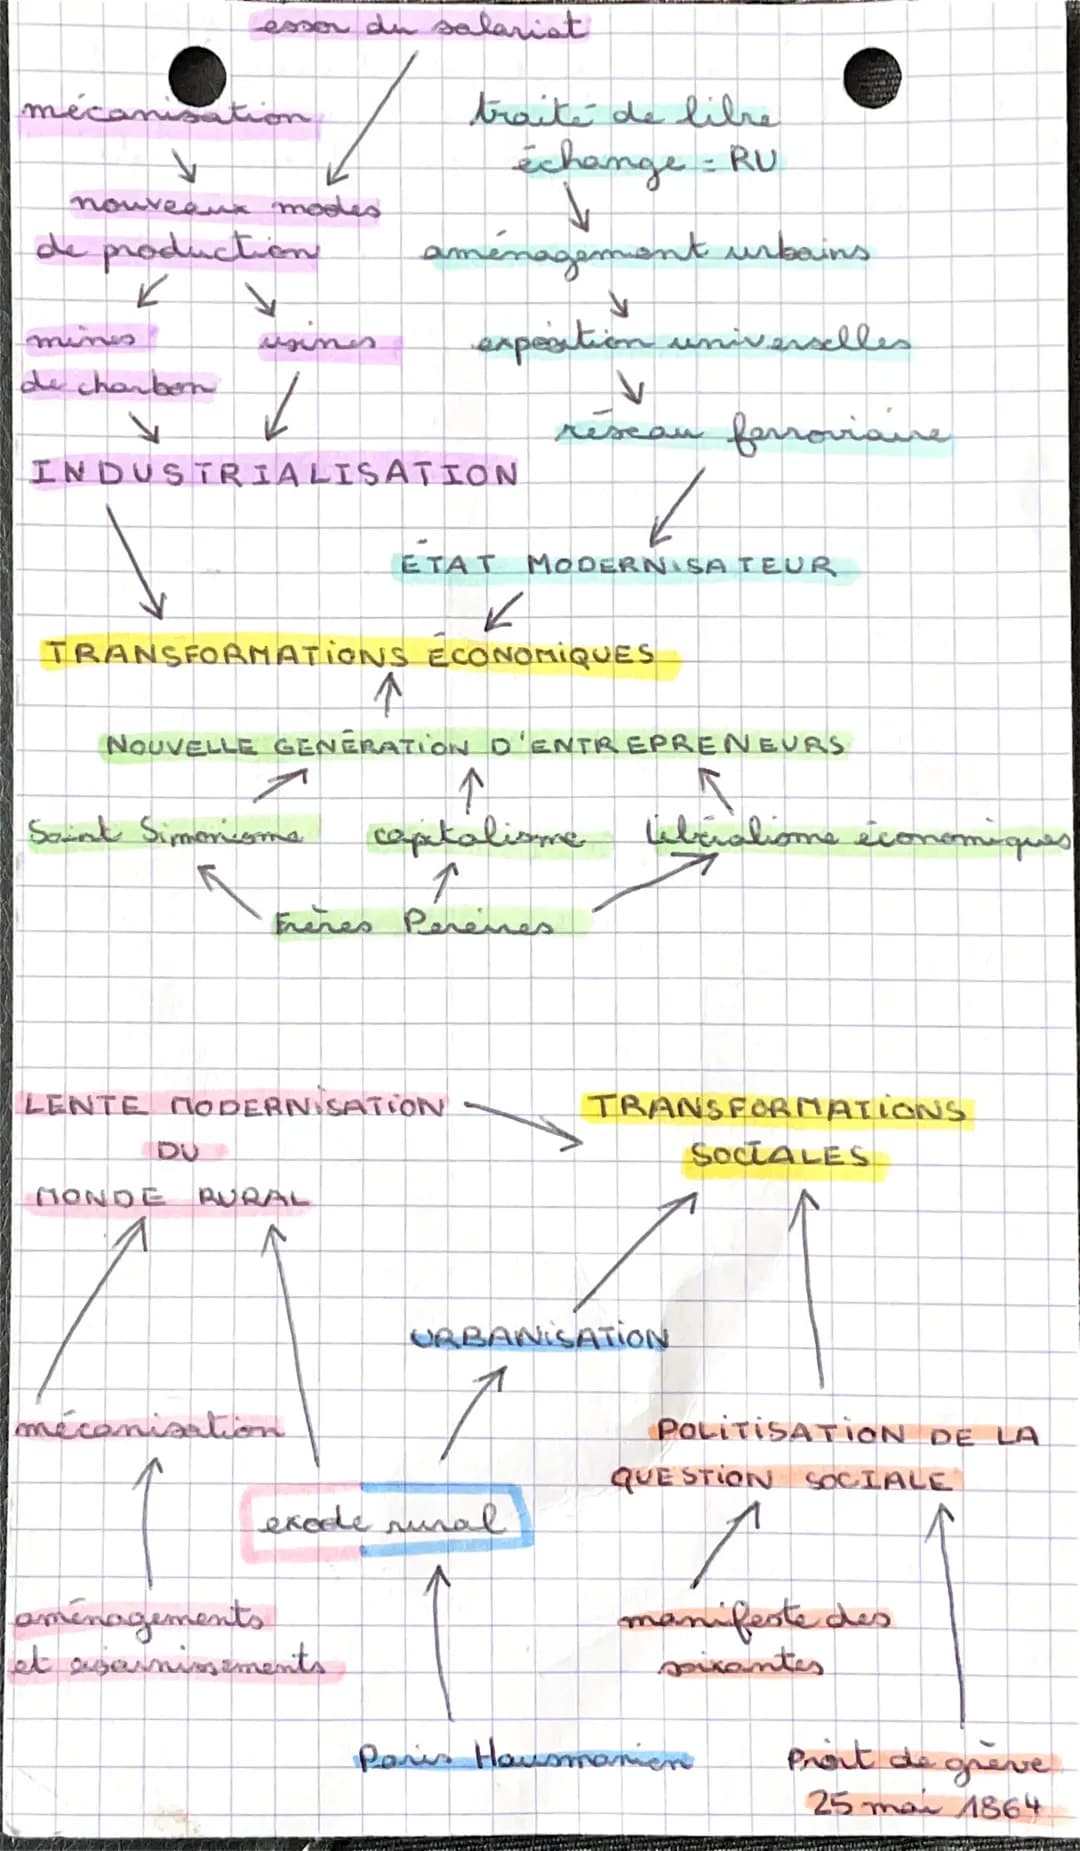 essor du salariat
mécanisation
traité de libre
échange = RU
nouveaux modes
de production
aménagement urbains
mines
de charbon
usines
exposition universelles
réseau ferroviaire
INDUSTRIALISATION
ÉTAT MODERNISATEUR
TRANSFORMATIONS ÉCONOMIQUES
NOUVELLE GÉNÉRATION D'ENTREPRENEURS
Saint Simonisme
capitalisme
libéralisme économiques
Frères Pereires
LENTE MODERNISATION
DU
MONDE RURAL
TRANSFORMATIONS
SOCIALES
URBANISATION
mécanisation
POLITISATION DE LA
QUESTION SOCIALE
exode rural
aménagements
et assainissements
manifeste des
soixantes
Paris Haussmanien
Droit de grève
25 mai 1864